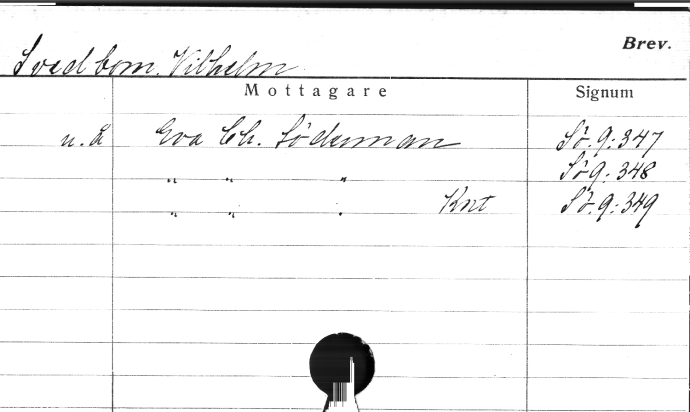 Brev.
Svedbom. Vilhelm
Mottagare Signum
u. å Eva Ch. Söderman Sö. 9: 347
" " " Sö 9: 348
" " " Knt Sö. 9: 349